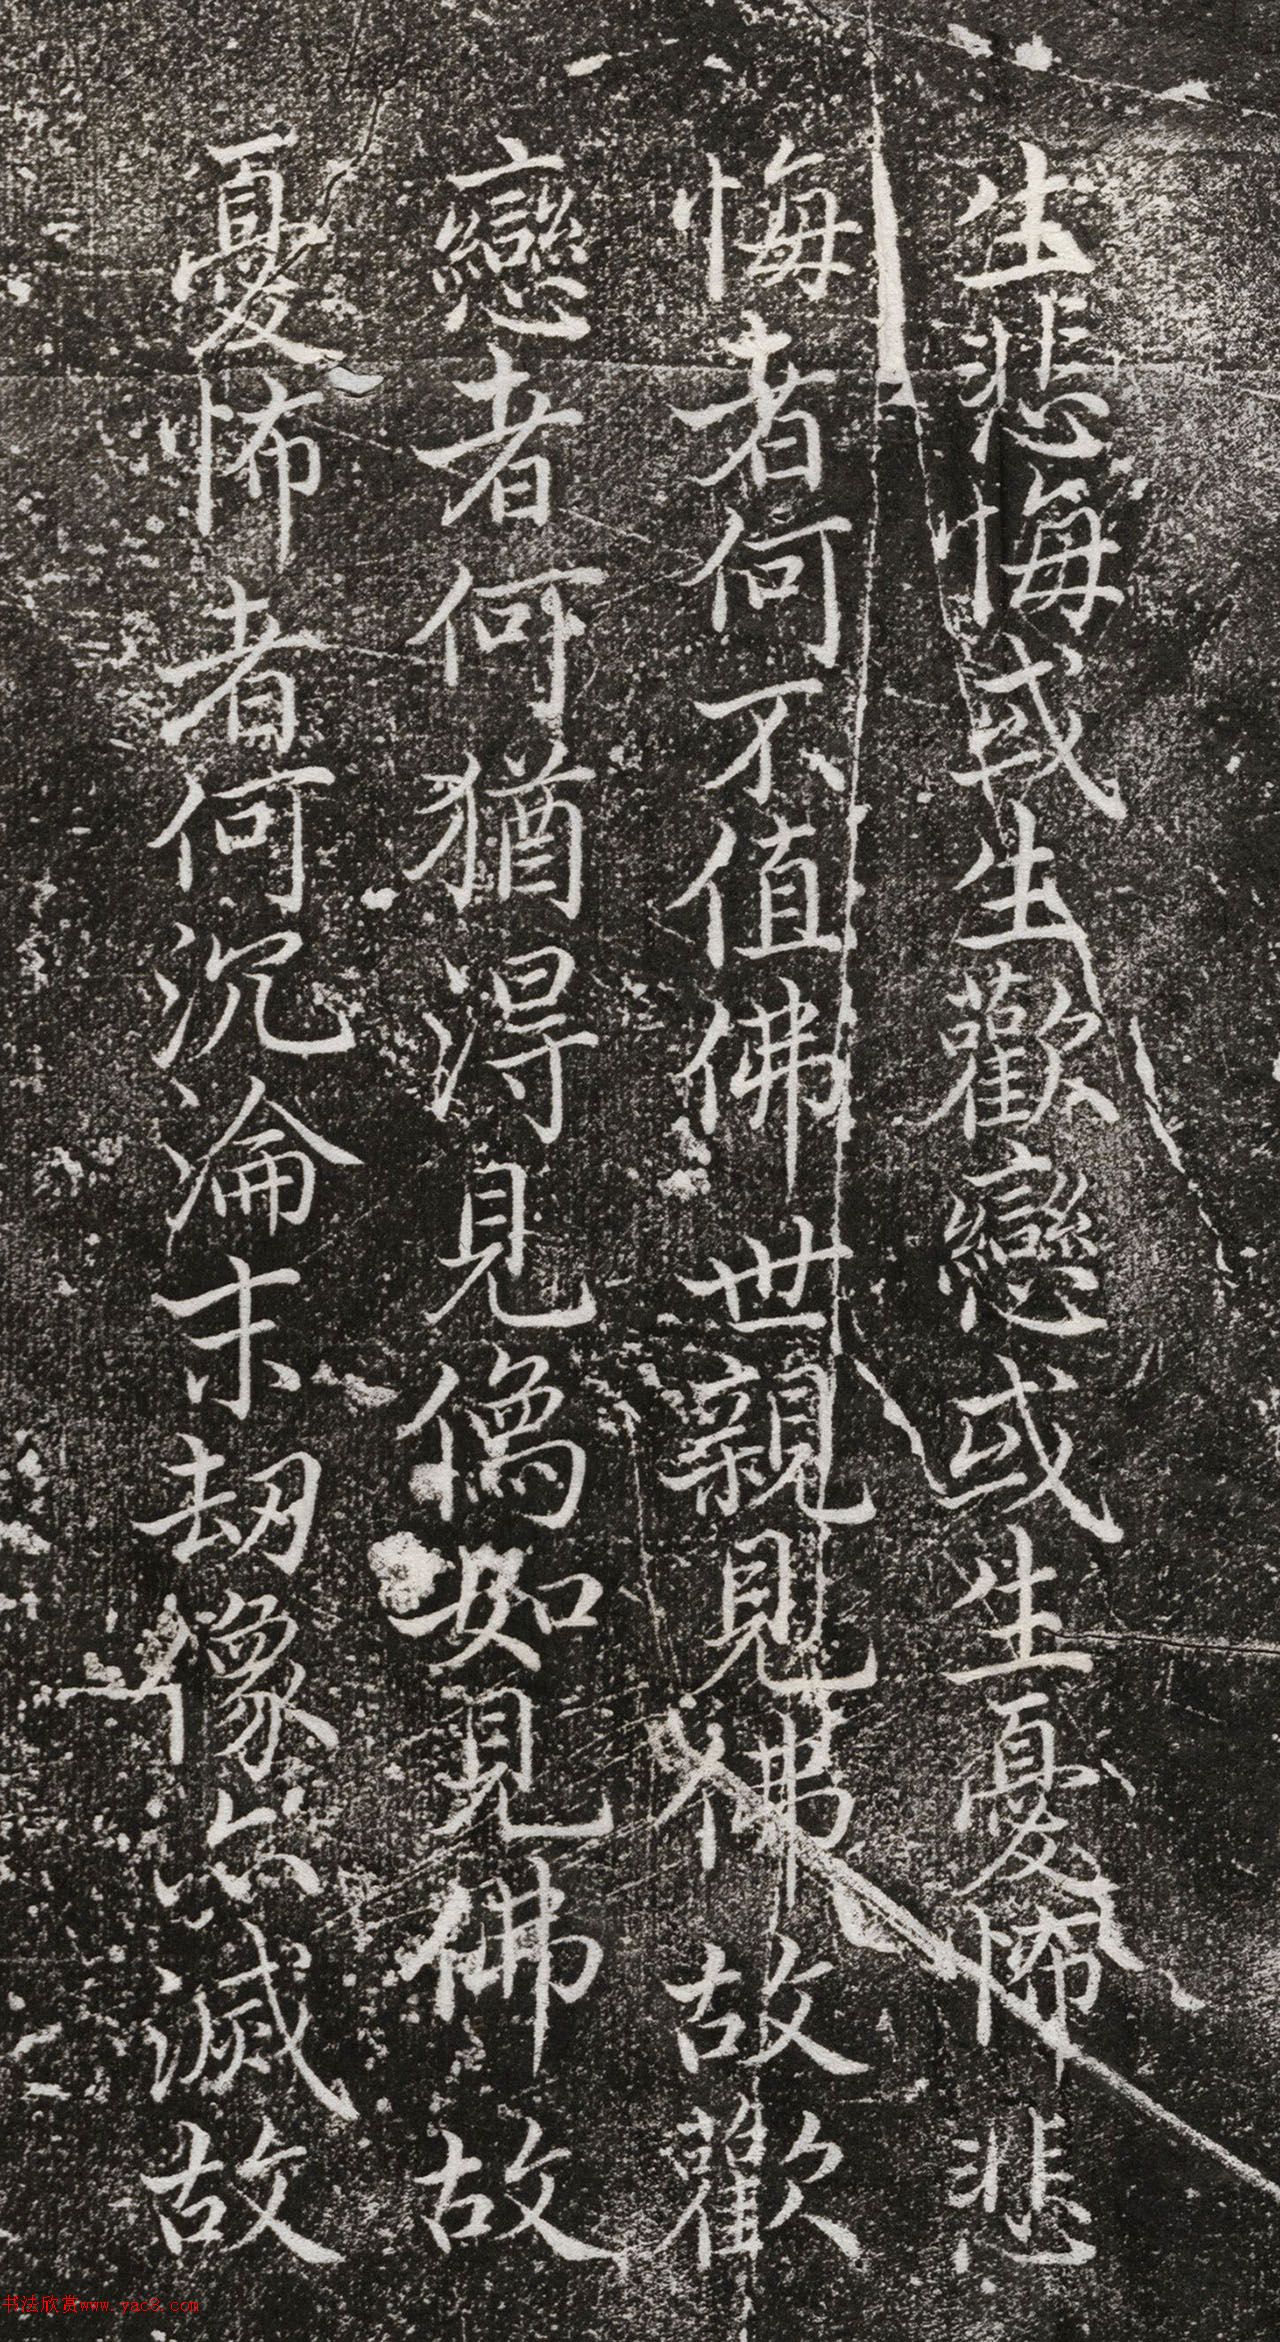 生悲悔或生歡戀或生憂怖悲
悔者何不值佛世親見佛故歡
戀者何猶得見像如見佛故
憂怖者何沉淪末劫像亦滅故
书法欣赏www.yac8.com